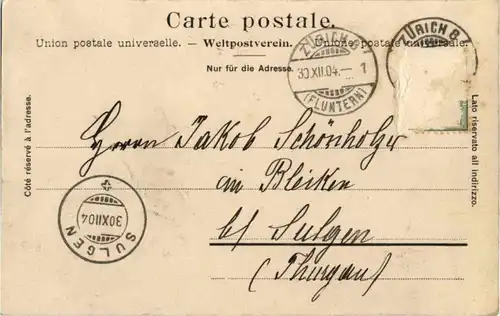 Carte postale.
Union postale universelle. — Weltpostverein. — Unione postale universale.
Nur für die Adresse.
ZÜRICH
30.XII.04.— 1
(FLUNTERN)
ZÜRICH 8
Côté réservé à l'adresse.
Lato riservato all indirizzo.
Herrn Jakob Schönholzer
in Bleiken
b/ Sulgen
(Thurgau)
30XII04
SULGEN